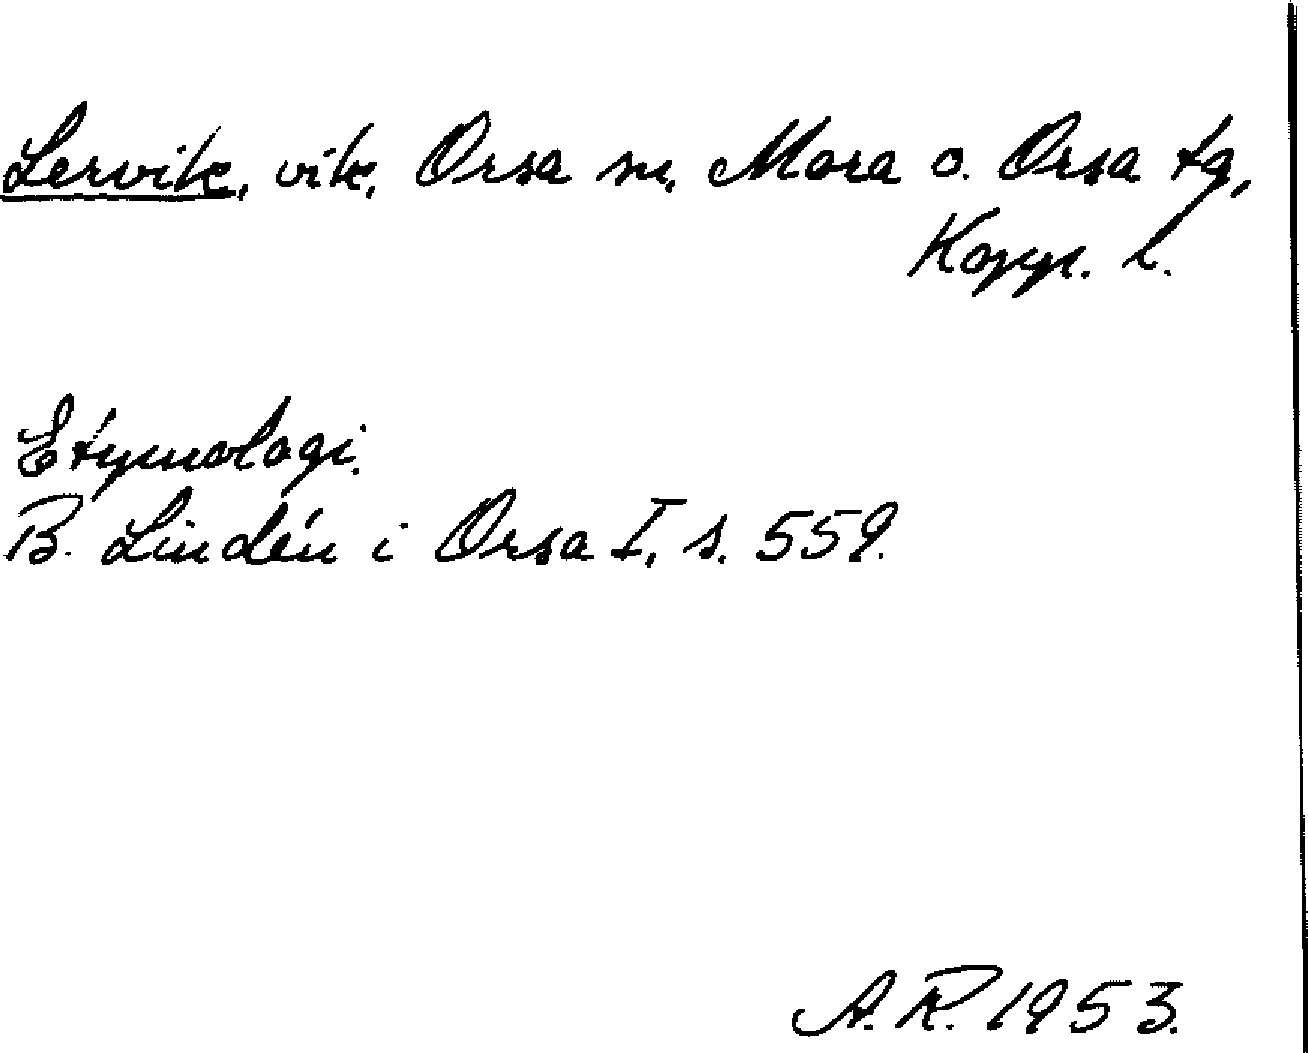 Lervik, vik, Orsa sn, Mora o. Orsa tg,
Kopp. l.
Etymologi.
B. Lindén i Orsa I, s. 559.
A.R. 1953.